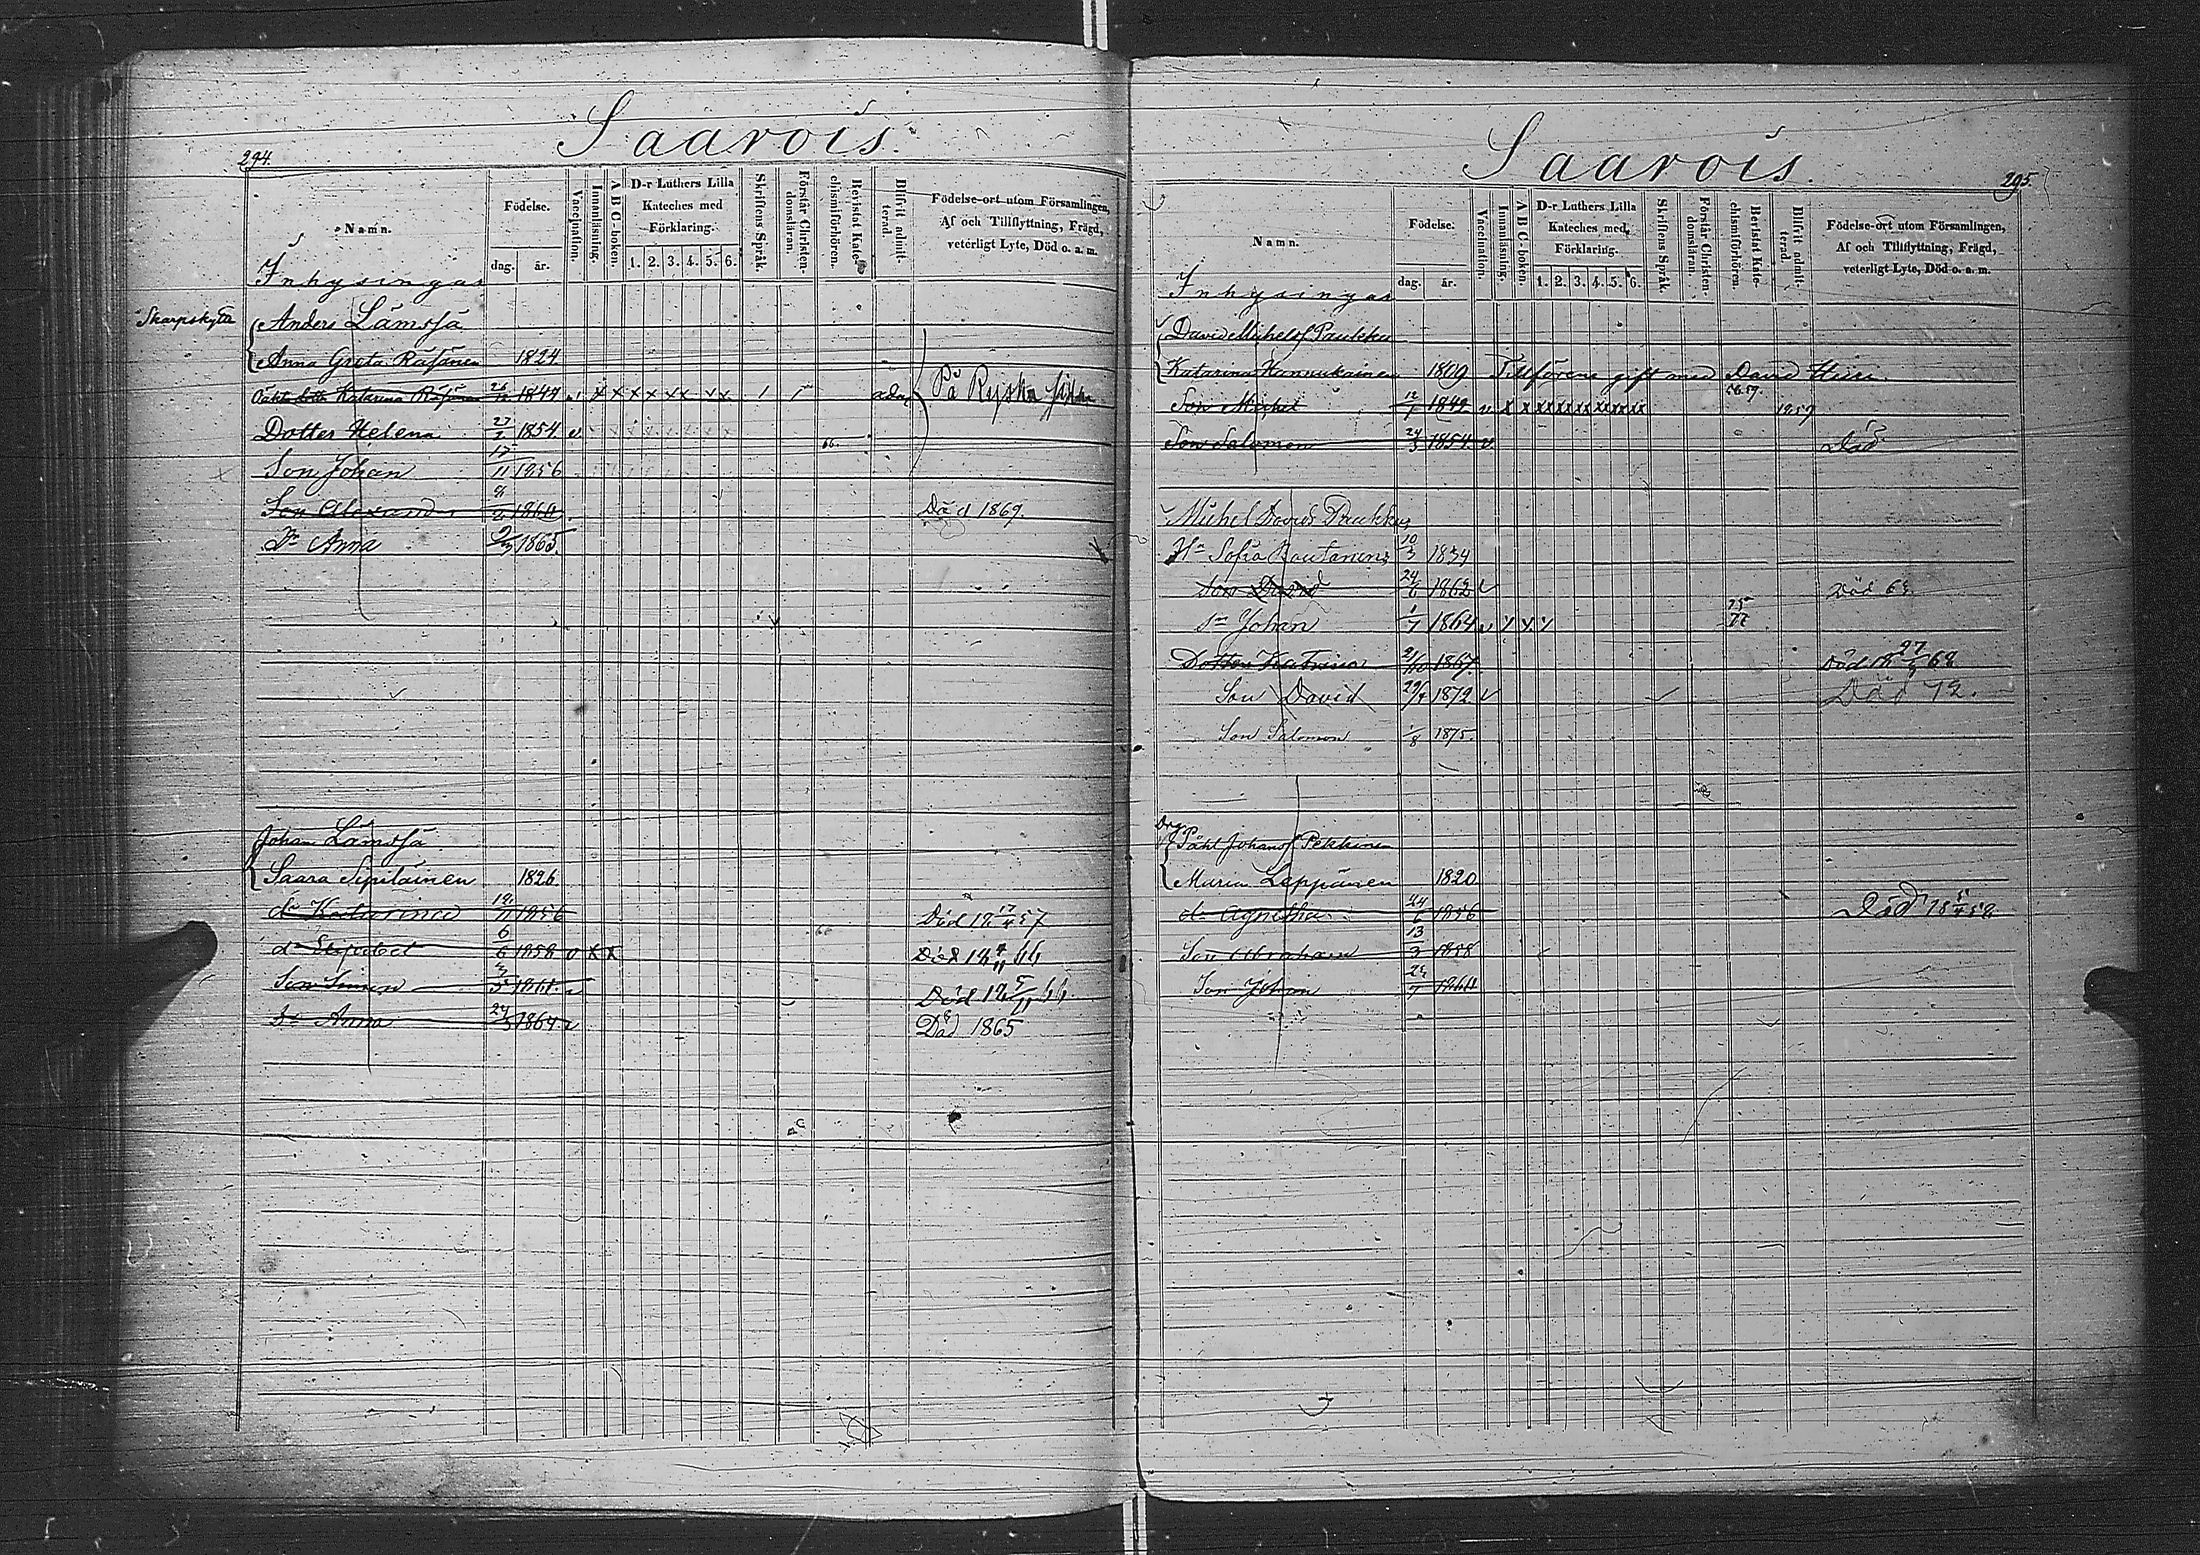 294.
Saarois.
Namn.
Födelse.
dag. år.
Vaccination.
Innanläsning.
ABC-boken.
D-r Luthers Lilla
Kateches med
Förklaring.
1. 2. 3. 4. 5. 6.
Skriftens Språk.
Förstår Christen-
domsläran.
Bevistat Kate-
chismiförhören.
Blifvit admit-
terad.
Födelse-ort utom Församlingen,
Af och Tillflyttning, Frägd,
veterligt Lyte, Död o. a. m.
Inhysingar
Anders Lämsä
Anna Greta Räisänen 1824
Katarina 1844 v x x x x x x x x
På Ryska sidan
Dotter Helena 27/1 1854 v 66.
Son Johan 15/11 1856
Son Alexander 1860 Död 1869.
Dr Anna 2/3 1865.
Johan Lämsä
Saara Sipiläinen 1826
dr Katarina 1856 Död 18 17/4 57
dr 6/6 1858 v x x Död 18 66
Son Simon Död 18 5/11 66.
dr Anna 1864 v Död 1865
Saarois.
295.
Namn.
Födelse.
dag. år.
Vaccination.
Innanläsning.
ABC-boken.
D-r Luthers Lilla
Kateches med
Förklaring.
1. 2. 3. 4. 5. 6.
Skriftens Språk.
Förstår Christen-
domsläran.
Bevistat Kate-
chismiförhören.
Blifvit admit-
terad.
Födelse-ort utom Församlingen,
Af och Tillflyttning, Frägd,
veterligt Lyte, Död o. a. m.
Inhysingar
David Michelsf Paukku
Katarina Hannukainen 1809 Tillförene gift med David
Son Michel 12/7 1842 v x x x x x x x x 56.57. 1859
Son Salomon 24/3 1854 v Död
Michel Davids Paukku
Hu Sofia Rautianen 10/3 1834
Son David 24/6 1862 v Död 63
Sn Johan 1/7 1864 v 75 77
Dotter Katrina 2/10 1867. Död 18 27/ 68
Son David 29/ 1872. v Död 72.
Son Salomon 1/8 1875.
Påhl Johansf Pekkinen
Maria Leppänen 1820
dr Agnetha 24/6 1856 Död 18 58
Son Abraham 13/3 1858
Son Johan